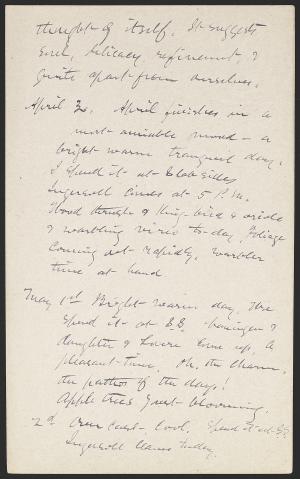 thought of itself. It suggests
delicacy, refinement, &
quite apart from ourselves.
April 30. April finishes in a
most amiable mood - a
bright warm tranquil day.
I spend it at Slabsides
Ingersoll comes at 5 P.M.
Wood thrush & King-bird & oriole
& warbling vireo to-day. Foliage
coming out rapidly. Warbler
time at hand
May 1st Bright warm day. We
spend it at S.S.
daughter & come up. A
pleasant time. Oh, the charm,
the pathos of the days!
Apple trees just blooming.
2d Over cast. Cool. Spend it at S.S.
Ingersoll leaves to-day.